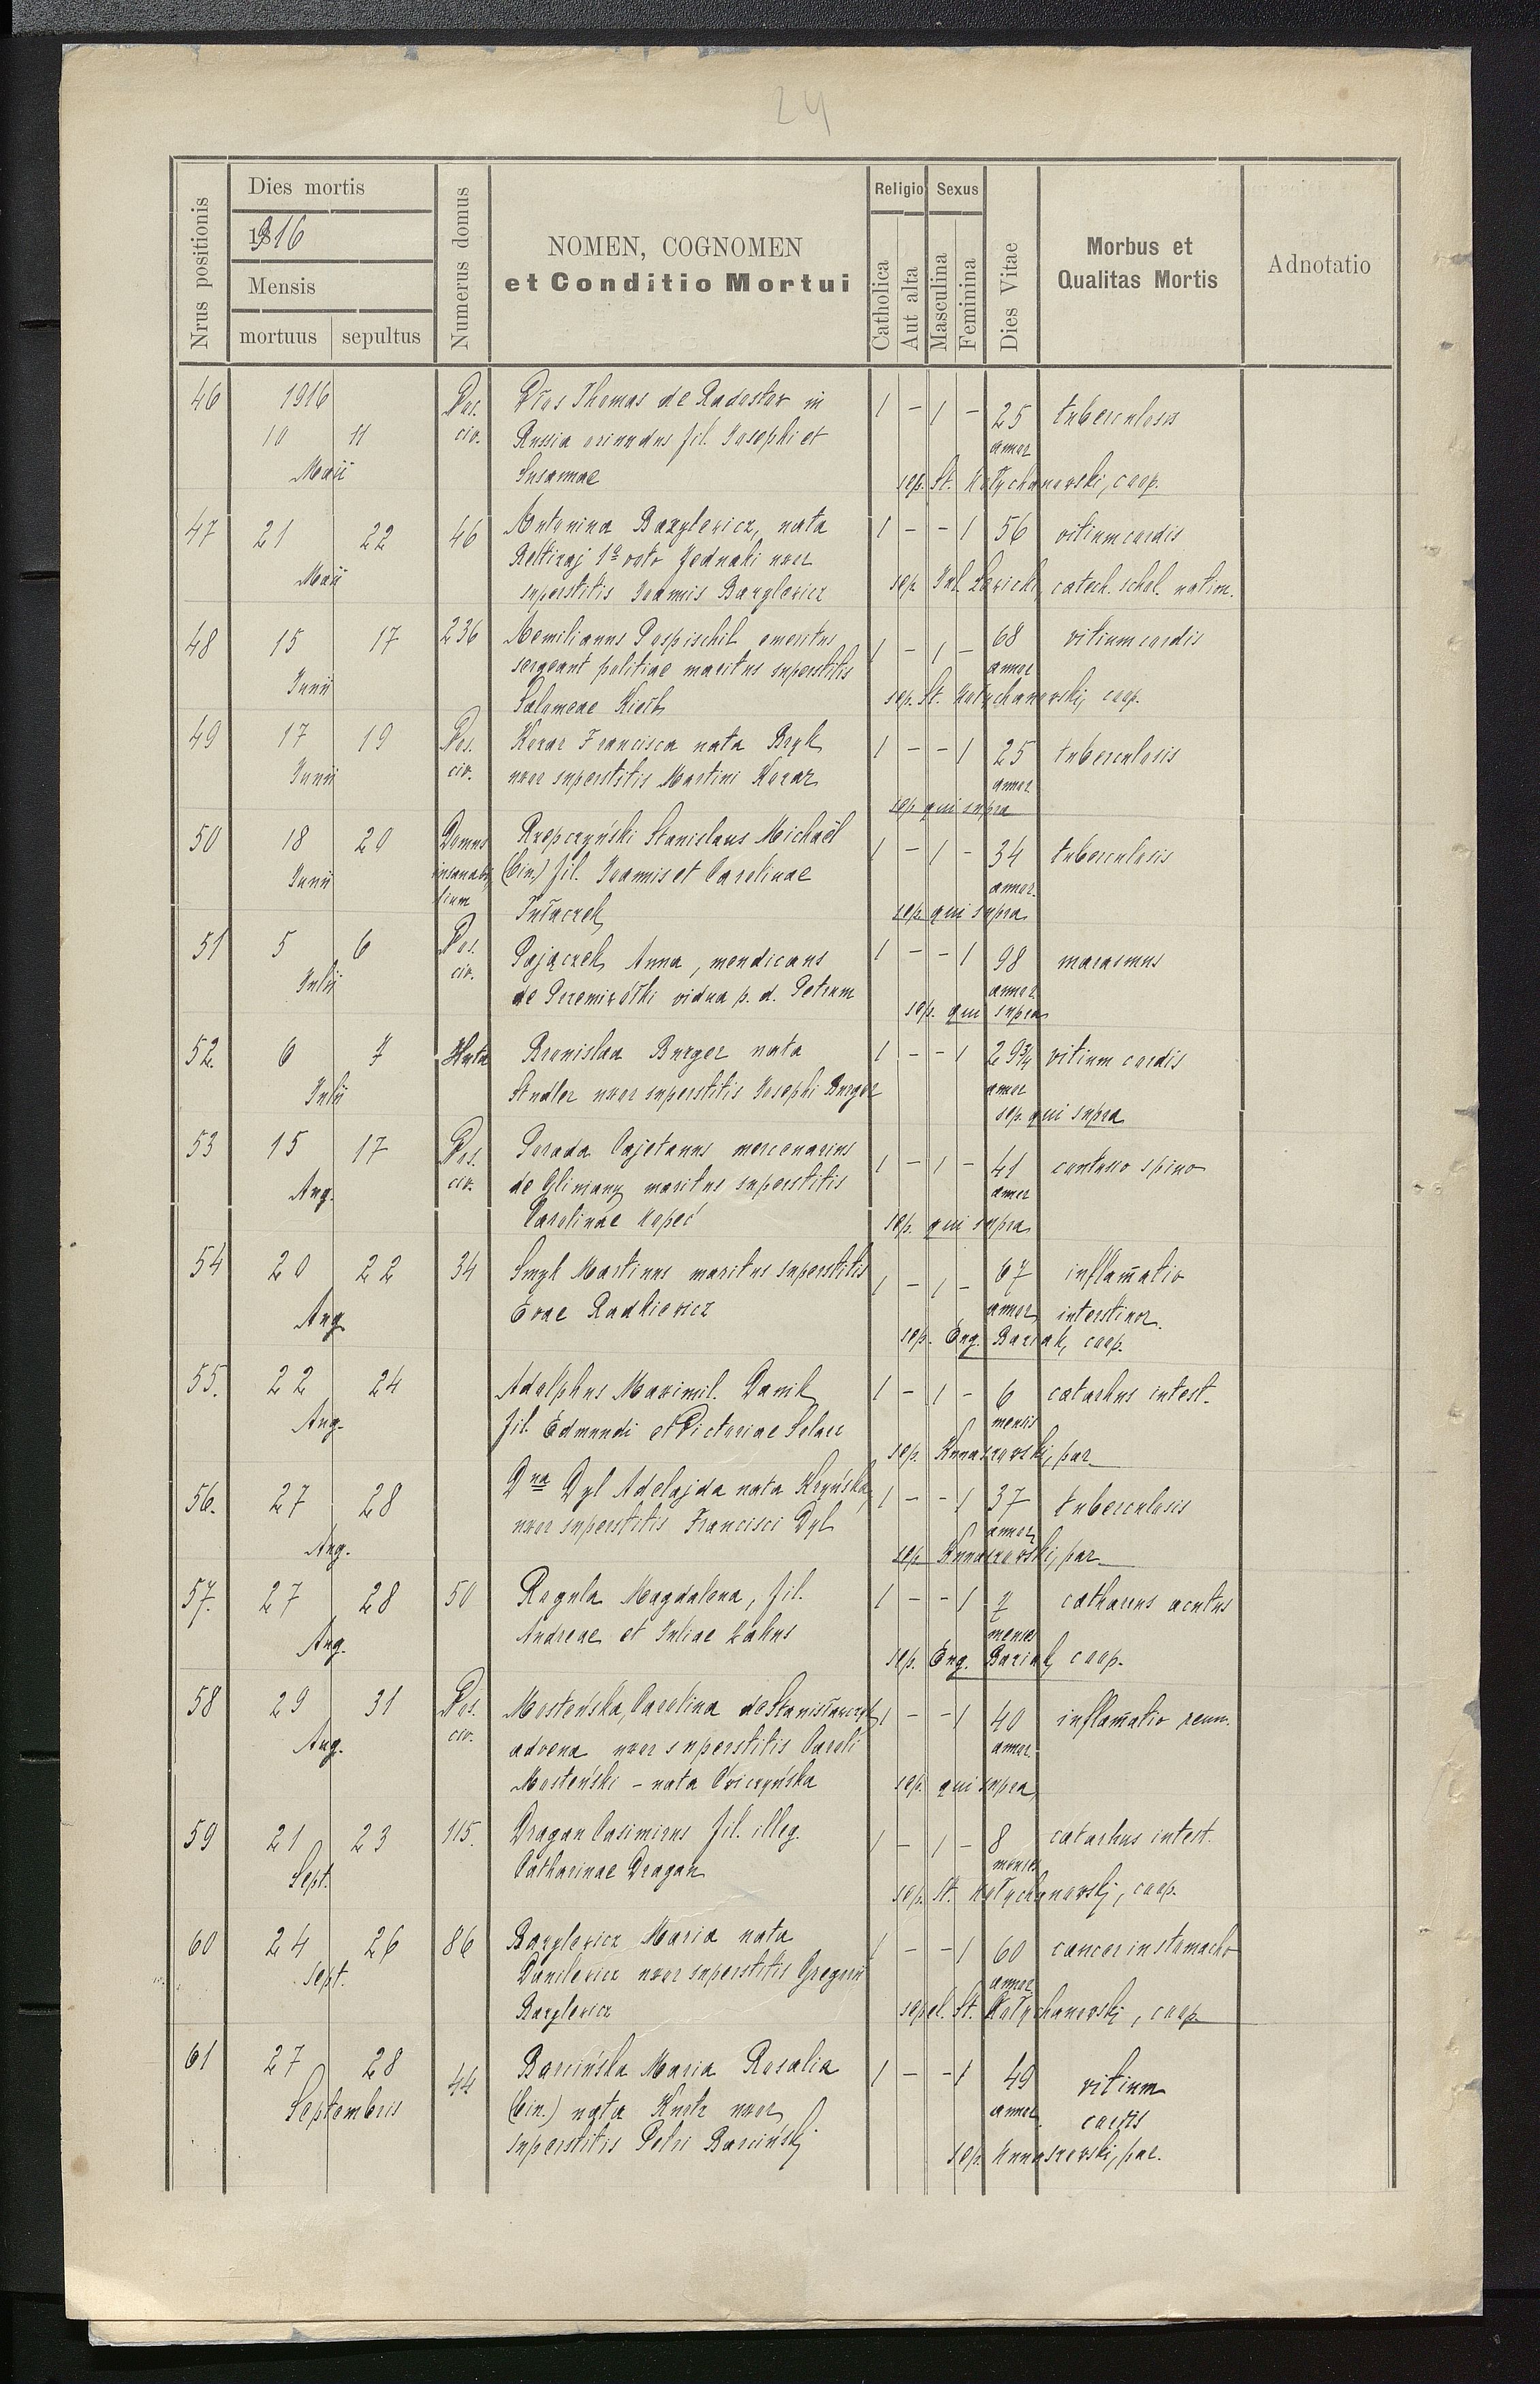 24
Nrus positionis
Dies mortis
1916
Mensis
mortuus sepultus
Numerus domus
NOMEN, COGNOMEN
et Conditio Mortui
Religio
Catholica
Aut alta
Sexus
Masculina
Feminina
Dies Vitae
Morbus et
Qualitas Mortis
Adnotatio
46 1916 Nos. Thomas de in 1 - 1 - 25 tuberculosis
10 11 civ. Russia oriundus fil. Josephi et annor
Maii Susannae sep. St. Kołychanowski, coop.
47 21 22 46 Antonina Bazylewicz, nata 1 - - 1 56 vitium cordis
1º voto Jednaki uxor
Maii superstitis Joannis Bazylewicz sep. Jul. catech. schol.
48 15 17 236 Aemilianus Pospischil emeritus 1 - 1 - 68 vitium cordis
sergeant politiae maritus superstitis annor
Junii Salomeae sep. St. Kołychanowski, coop.
49 17 19 Nos. Francisca nata Bryk 1 - - 1 25 tuberculosis
Junii civ. uxor superstitis Martini annor
sep. qui supra
50 18 20 Domus Rzepczyński Stanislaus Michaël 1 - 1 - 34 tuberculosis
Junii insanabilium (bin.) fil. Joannis et Carolinae annor
Tułaczek sep. qui supra
51 5 6 Nos. Pajączek Anna, mendicans 1 - - 1 98 marasmus
Julii civ. de vidua p. d. Petrum annor
sep. qui supra
52. 6 7 Huta Bronislaa Burger nata 1 - - 1 29¾ vitium cordis
Julii Studler uxor superstitis Josephi Burger annor
sep. qui supra
53 15 17 Nos. Porada Cajetanus mercenarius 1 - 1 - 41
Aug. civ. de Glimany maritus superstitis annor
Carolinae Kopeć sep. qui supra
54 20 22 34 Smyk Martinus maritus superstitis 1 - 1 - 67 inflam̄atio
Aug. Evae Radkiewicz annor intestinor.
sep. Eug. Baziak, coop.
55. 22 24 Adolphus Maximil. Danik 1 - 1 - 6 catarhus intest.
Aug. fil. Edmundi et Victoriae mensis
sep. Kunaszowski, par.
56. 27 28 Dna Dyl Adelajda nata Kryńska, 1 - - 1 37 tuberculosis
Aug. uxor superstitis Francisci Dyl annor
sep. Kunaszowski, par.
57. 27 28 50 Regula Magdalena, fil. 1 - - 1 2 catharus acutus
Aug. Andreae et Juliae Zahus menses
sep. Eug. Baziak, coop.
58 29 31 Nos. Mosteńska, Carolina de 1 - - 1 40 inflam̄atio renum.
Aug. civ. advena uxor superstitis Caroli annor
Mosteński - nata sep. qui supra
59 21 23 115. Dragan Casimirus fil. illeg. 1 - 1 - 8 catarhus intest.
Sept. Catharinae Dragan menses
sep. St. Kołychanowski, coop.
60 24 26 86 Bazylewicz Maria nata 1 - - 1 60 cancer in stomacho
Sept. Danilewicz uxor superstitis Gregorii annor
Bazylewicz sepel. St. Kołychanowski, coop.
61 27 28 44 Barcińska Maria Rosalia 1 - - 1 49 vitium
Septembris (bin.) nata uxor annor cordis
superstitis Petri Barciński sep. Kunaszowski, par.